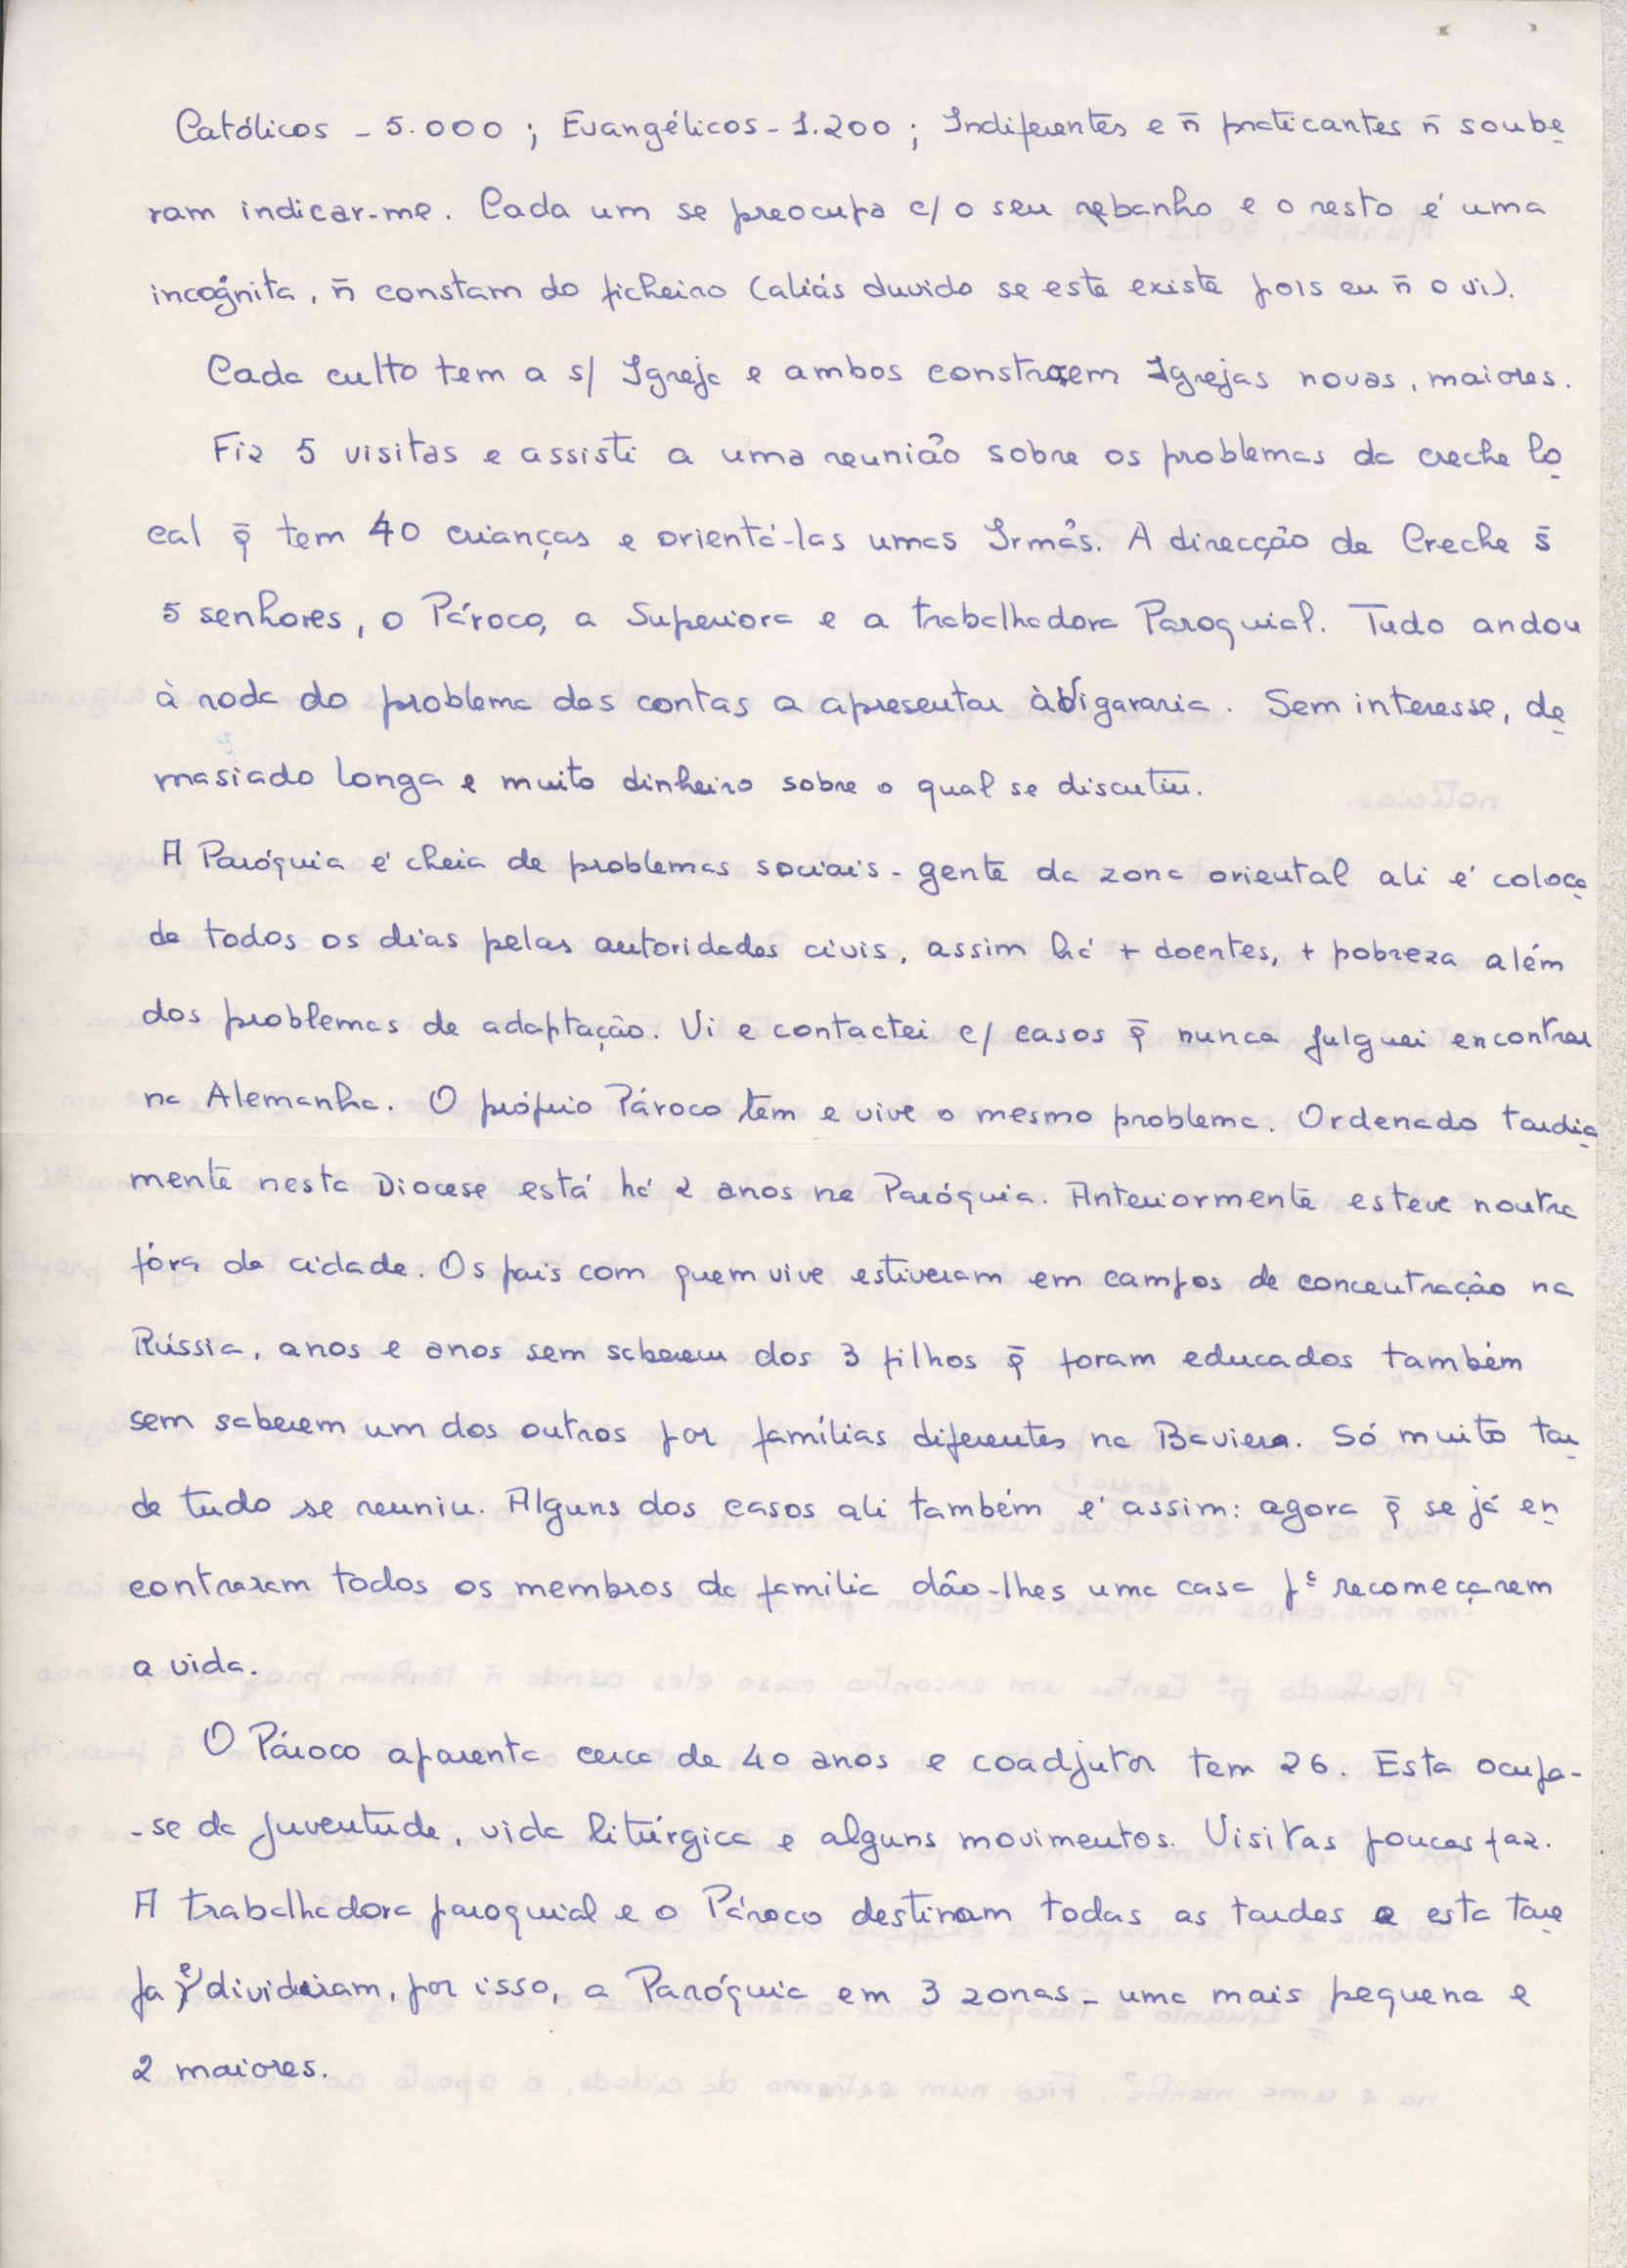 Católicos - 5.000 ; Evangélicos - 1.200 ; Indiferentes e n̄ praticantes n̄ soube
ram indicar-me. Cada um se preocupa c/ o seu rebanho e o resto é uma
incógnita, n̄ constam do ficheiro (aliás duvido se este existe pois eu n̄ o vi).
Cada culto tem a s/ Igreja e ambos constroem Igrejas novas, maiores.
Fiz 5 visitas e assisti a uma reunião sobre os problemas da creche lo
cal q̄ tem 40 crianças e orientá-las umas Irmãs. A direcção da Creche s̄
5 senhores, o Pároco, a Superiora e a trabalhadora Paroquial. Tudo andou
à roda do problema das contas a apresentar à Vigararia. Sem interesse, de
masiado longa e muito dinheiro sobre o qual se discutiu.
A Paróquia é cheia de problemas sociais - gente da zona oriental ali é coloca
da todos os dias pelas autoridades civis, assim há + doentes, + pobreza além
dos problemas de adaptação. Vi e contactei c/ casos q̄ nunca julguei encontrar
na Alemanha. O próprio Pároco tem e vive o mesmo problema. Ordenado tardia
mente nesta Diocese está há 2 anos na Paróquia. Anteriormente esteve noutra
fóra da cidade. Os pais com quem vive estiveram em campos de concentração na
Rússia, anos e anos sem saberem dos 3 filhos q̄ foram educados também
sem saberem um dos outros por famílias diferentes na Baviera. Só muito tar
de tudo se reuniu. Alguns dos casos ali também é assim: agora q̄ se já en
contraram todos os membros da familia dão-lhes uma casa pª recomeçarem
a vida.
O Pároco aparenta cerca de 40 anos e coadjutor tem 26. Esta ocupa-
-se da juventude, vida litúrgica e alguns movimentos. Visitas poucas faz.
A trabalhadora paroquial e o Pároco destinam todas as tardes a esta tare
fa e dividiram, por isso, a Paróquia em 3 zonas - uma mais pequena e
2 maiores.